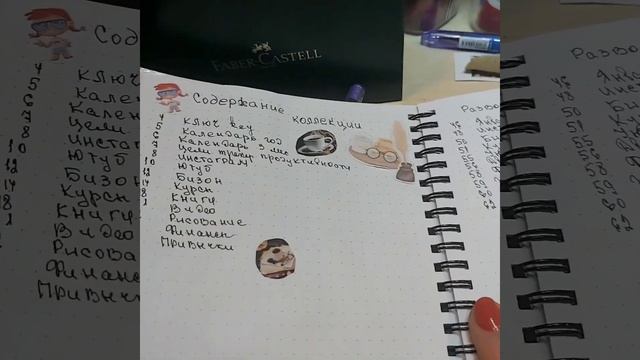 FABER-CASTELL
Содержание коллекции
4 Ключ key
5 Календарь год
6 Календарь 3 мес
7 Цели трекер продуктивности
8 Инстаграм
10 Ютуб
12 Бизон
14 Курсы
8 Книги
1 Видео
Рисование
Финансы
Привычки
Разво